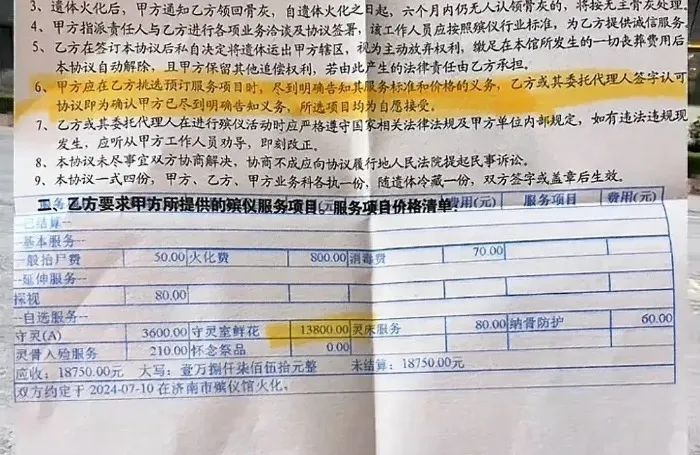 3、遗体火化后，甲方通知乙方领回骨灰，自遗体火化之日起，六个月内仍无人认领骨灰的，将按无主骨灰处理。
4、甲方指派责任人与乙方进行各项业务洽谈及协议签署，该工作人员应按照殡仪行业标准，为乙方提供诚信服务
5、乙方在签订本协议后私自决定将遗体运出甲方辖区，视为主动放弃权利，缴足在本馆所发生的一切丧葬费用后
本协议自动解除，且甲方保留其他追偿权利，若由此产生的法律责任由乙方承担。
6、甲方应在乙方挑选预订服务项目时，尽到明确告知其服务标准和价格的义务，乙方或其委托代理人签字认可
协议即为确认甲方已尽到明确告知义务，所选项目均为自愿接受。
7、乙方或其委托代理人在进行殡仪活动时应严格遵守国家相关法律法规及甲方单位内部规定，如有违法违规现
发生，应听从甲方工作人员劝导，即刻改正。
8、本协议未尽事宜双方协商解决，协商不成应向协议履行地人民法院提起民事诉讼。
9、本协议一式四份，甲方、乙方、甲方业务科各执一份，随遗体冷藏一份，双方签字或盖章后生效。
二、乙方要求甲方所提供的殡仪服务项目、服务项目价格清单：
费用(元) 服务项目 费用(元)
--已结算--
--基本服务--
一般抬尸费 50.00 火化费 800.00 消毒费 70.00
--延伸服务--
探视 80.00
--自选服务--
守灵(A) 3600.00 守灵室鲜花 13800.00 灵床服务 80.00 纳骨防护 60.00
灵骨入殓服务 210.00 怀念祭品 0.00
应收：18750.00元 大写：壹万捌仟柒佰伍拾元整 未结算：18750.00元
双方约定于 2024-07-10 在济南市殡仪馆火化。